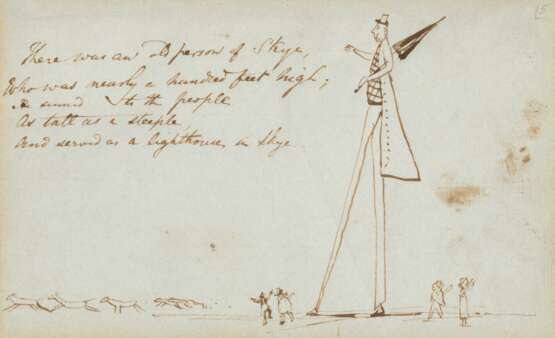 There was an old person of Skye,
Who was nearly a hundred feet high;
seemed to the people
As tall as a steeple
And served as a lighthouse in Skye